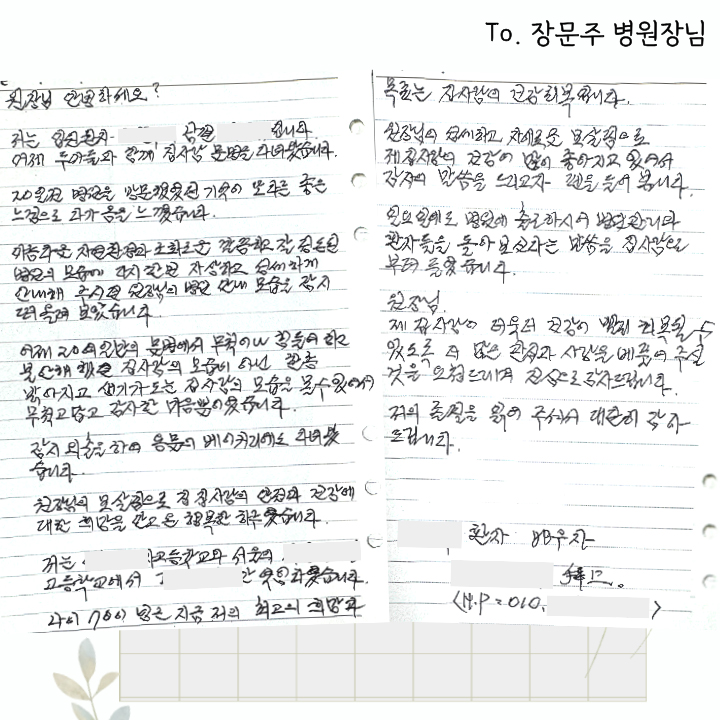 To. 장문주 병원장님
원장님 안녕하세요?
저는 입원환자 남편 입니다.
어제 두아들과 함께 집사람 문병을 다녀왔습니다.
20일전 병원을 방문했었던 기억이 떠오른 좋은
느낌으로 다가옴을 느꼈습니다.
아름다운 자연환경과 조화로운 깔끔하고 잘 정돈된
병원의 모습에 자상하고 섬세하게
안내해 주시던 원장님의 병원 안내 모습을 잠시
떠올려 보았습니다.
어제 20여일만의 문병에서 무척이나 힘들어 하고
불안해 했던 집사람의 모습이 아닌 한층
밝아지고 생기가 도는 집사람의 모습을 볼수 있어서
무척 고맙고 감사한 마음뿐이었습니다.
잠시 외출을 하여 용문의 베이커리에도 다녀왔
습니다.
원장님의 보살핌으로 집사람의 안정과 건강에
대한 희망을 안고 온 행복한 하루였습니다.
저는 고등학교와 서울의
고등학교에서 간 였습니다.
나이 70이 넘은 지금 저의 최고의 희망과
목표는 집사람의 건강회복 입니다.
원장님의 섬세하고 자애로운 보살핌으로
제 집사람의 건강이 많이 좋아지고 있어서
감사의 말씀을 드리고자 펜을 들어 봅니다.
일요일에도 병원에 출근하시어 병원관리와
환자들을 돌아 보신다는 말씀을 집사람으로
부터 들었습니다.
원장님.
제 집사람이 더욱더 건강이 빨리 회복될 수
있도록 더 많은 관심과 사랑을 베풀어 주실
것을 드리며 진심으로 감사드립니다.
저의 졸필을 읽어 주셔서 대단히 감사
드립니다.
환자 배우자
드림.
(H.P = 010.